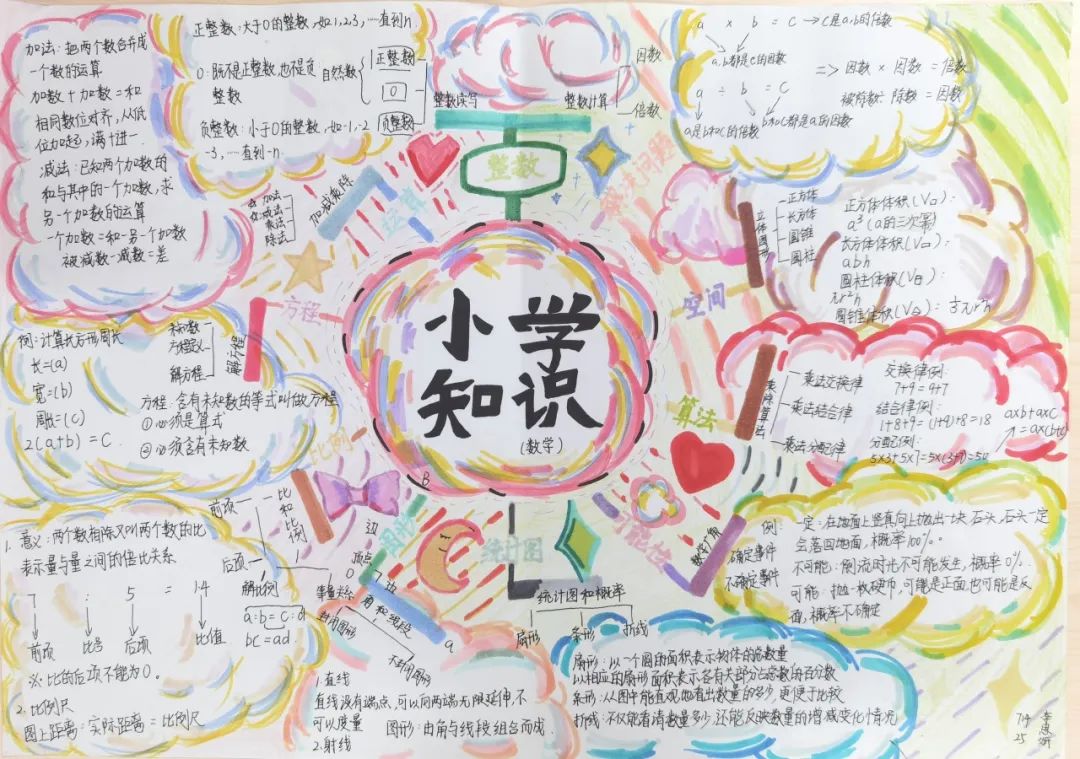 小学
知识
(数学)
整数
整数读写
整数计算
因数
倍数
正整数:大于0的整数,如1,2,3,…直到n.
0:既不是正整数,也不是负
整数
负整数:小于0的整数,如-1,-2
-3,…直到-n.
自然数
正整数
0
负整数
a × b = c → c是a,b的倍数
a,b都是c的因数
a ÷ b = c
a是b和c的倍数
b和c都是a的因数
=> 因数 × 因数 = 倍数
被除数÷除数 = 因数
加法:把两个数合并成
一个数的运算
加数+加数=和
相同数位对齐,从低
位加起,满十进一
减法:已知两个加数的
和与其中的一个加数,求
另一个加数的运算
一个加数=和-另一个加数
被减数-减数=差
加减乘除
加法
减法
乘法
除法
空间
立体图形
正方体
长方体
圆锥
圆柱
正方体体积(V□):
a³(a的三次幂)
长方体体积(V□):
abh
圆柱体积
πr²h
圆锥体积
⅓πr²h
方程
解方程
未知数
方程意义
解方程
例:计算长方形周长
长=(a)
宽=(b)
周长=(c)
2(a+b)=C
方程:含有未知数的等式叫做方程
①必须是算式
②必须含有未知数
算法
乘除算法
乘法交换律
乘法结合律
乘法分配律
交换律例:
7+9=9+7
结合律例:
1+8+9=(1+9)+8=18
分配例:
5×3+5×7=5×(3+7)=50
a×b+a×c
=a×(b+c)
比例
比和比例
前项
后项
解比例
a:b=c:d
bc=ad
1.意义:两个数相除又叫两个数的比
表示量与量之间的倍比关系
7 : 5 = 1.4
前项
比号
后项
比值
※比的后项不能为0。
2.比例尺
图上距离:实际距离=比例尺
可能性
确定事件
不确定事件
例:一定:在地面上竖直向上抛出一块石头,石头一定
会落回地面,概率100%。
不可能:倒流时光不可能发生,概率0%.
可能:抛一枚硬币,可能是正面也可能是反
面,概率不确定
图形
角和线段
边
顶点
封闭图形
不封闭图形
B
O
a
1.直线
直线没有端点,可以向两端无限延伸,不
可以度量
2.射线
图形:由角与线段组合而成.
统计图
统计图和概率
扇形
条形
折线
扇形:以一个圆的面积表示物体的总数量
以相应的扇形面积表示各有关部分占总数的百分数
条形:从图中能直观地看出数量的多少,更便于比较
折线:不仅能看清数量多少,还能反映数量的增减变化情况
714
25